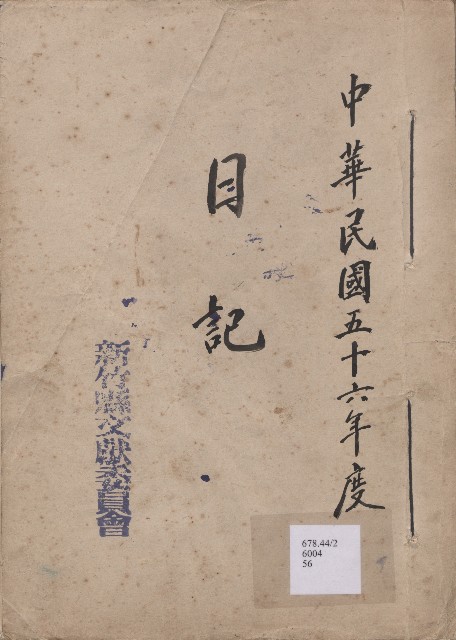 中華民國五十六年度
日記
新竹縣文獻委員會
678.44/2
6004
56